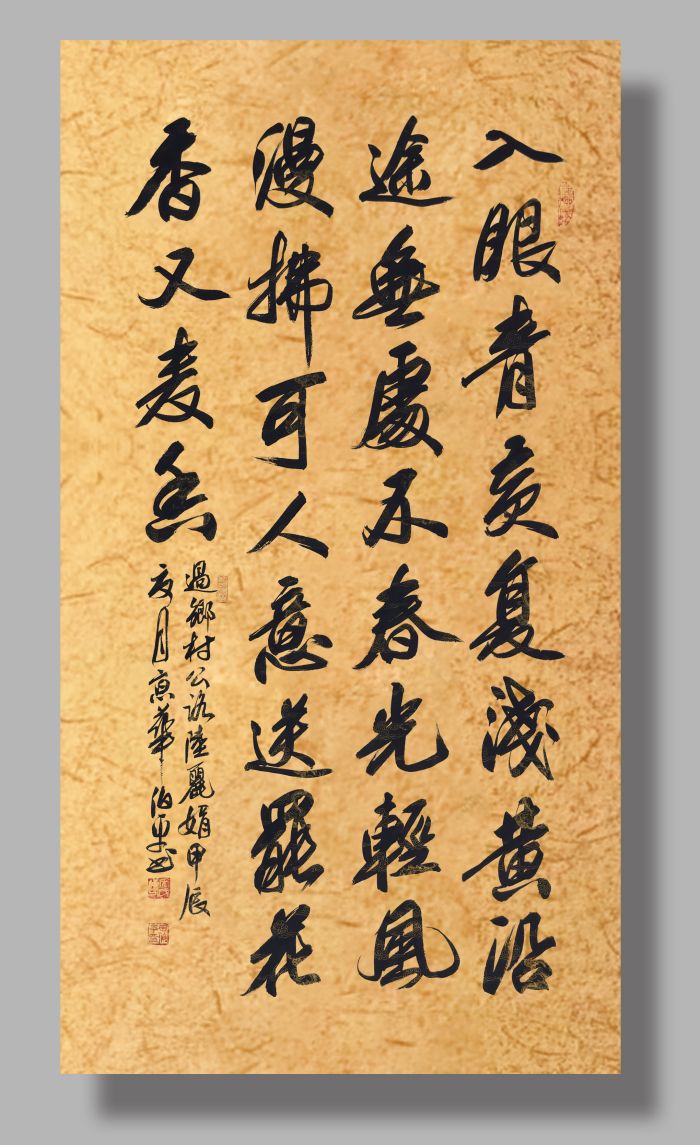 入眼青青复淺黄沿
途無處不春光輕風
漫拂可人意送罷花
香又麦香
過鄉村公路陸麗娟甲辰
夏月京華伯书